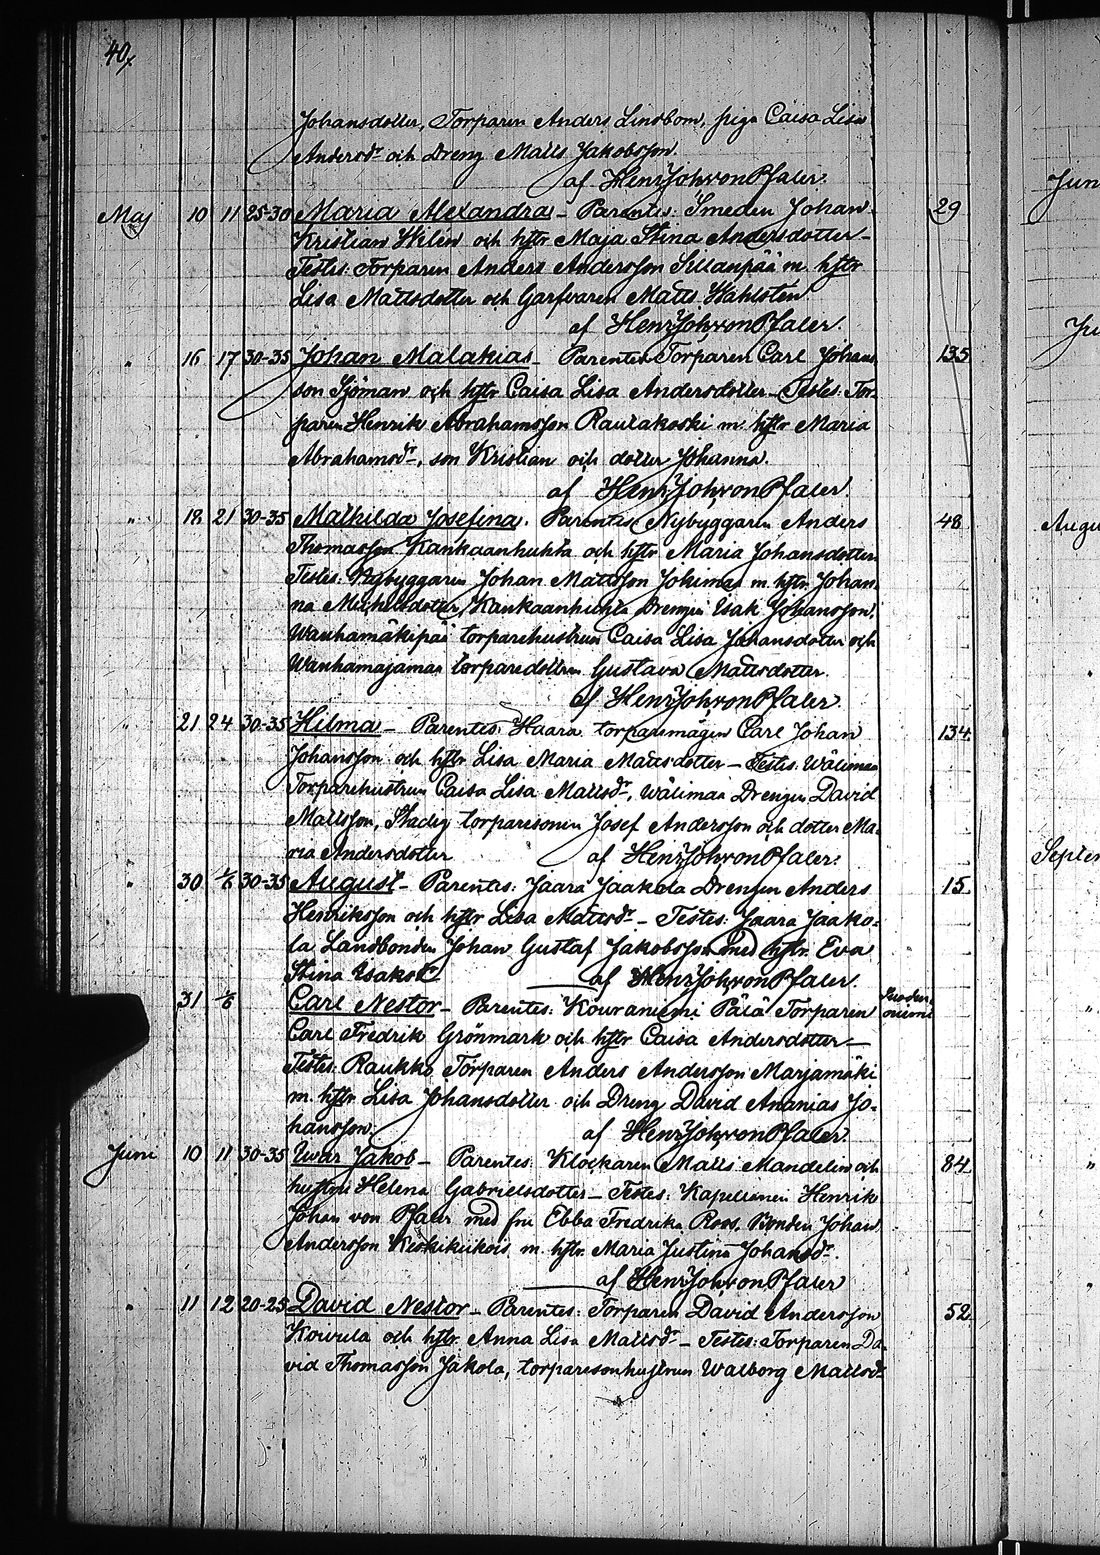 40,
Johansdotter, Torparen Anders Lindbom, piga Caisa Lisa
Andersdr och Dreng Matts Jakobsson.
af HenrJohvonPfaler.
Maj 10 11 25-30 Maria Alexandra – Parentes: Smeden Johan 29
Kristian Wilén och hstr Maja Stina Andersdotter –
Testes: Torparen Anders Andersson Sillanpää m. hstr
Lisa Mattsdotter och Garfvaren Matts Wahlsten
af HenrJohvonPfaler.
" 16 17 30-35 Johan Malakias – Parentes Torparen Carl Johans- 135
son Sjöman och hstr Caisa Lisa Andersdotter – Testes: Tor-
paren Henrik Abrahamsson Rautakoski m hstr Maria
Abrahamsdr, son Kristian och dotter Johanna.
af HenrJohvonPfaler.
" 18 21 30-35 Mathilda Josefina. Parentes Nybyggaren Anders 48
Thomasson Kankaanhuhta och hstr Maria Johansdotter
Testes. Nybyggaren Johan Mattsson Jokimaa m. hstr Johan-
na Michelsdotter, Kankaanhuhta Drengen Isak Johansson,
Wanhamäkipää torparehustrun Caisa Lisa Johansdotter och
Wanhamajamaa torparedottren Gustava Mattsdotter.
af HenrJohvonPfaler
" 21 24 30-35 Hilma – Parentes Haara torparemågen Carl Johan 134
Johansson och hstr Lisa Maria Mattsdotter – Testes. Wälimaa
Torparehustrun Caisa Lisa Mattsdr, Wälimaa Drengen David
Mattsson, Stadig torparesonen Josef Andersson och dotter Ma-
ria Andersdotter af HenrJohvonPfaler.
" 30 1/6 30-35 August – Parentes: Jaara Jaakola Drengen Anders 15
Henriksson och hstr Lisa Mattsdr – Testes: Jaara Jaako-
la Landbonden Johan Gustaf Jakobsson med hstr. Eva
Stina Isaksdr af HenrJohvonPfaler.
31 1/6 Carl Nestor – Parentes: Kouraniemi Pälä Torparen Suoden-
Carl Fredrik Grönmark och hstr Caisa Andersdotter – niemi
Testes. Raukko Torparen Anders Andersson Marjamäki
m. hstr Lisa Johansdotter och Dreng David Ananias Jo-
hansson. af HenrJohvonPfaler.
Juni 10 11 30-35 Iwar Jakob – Parentes: Klockaren Matts Mandelin och 84
hustru Helena Gabrielsdotter – Testes: Kapellanen Henrik
Johan von Pfaler med fru Ebba Fredrika Roos, Bonden Johan
Andersson Keskikiikois m. hstr Maria Justina Johansdr.
af HenrJohvonPfaler
" 11 12 20-25 David Nestor – Parentes: Torparen David Andersson 52
Koivula och hstr. Anna Lisa Mattsdr – Testes: Torparen Da-
vid Thomasson Jakola, torparesonhustrun Walborg Mattsdr
Jun
Ju
Augu
Septem